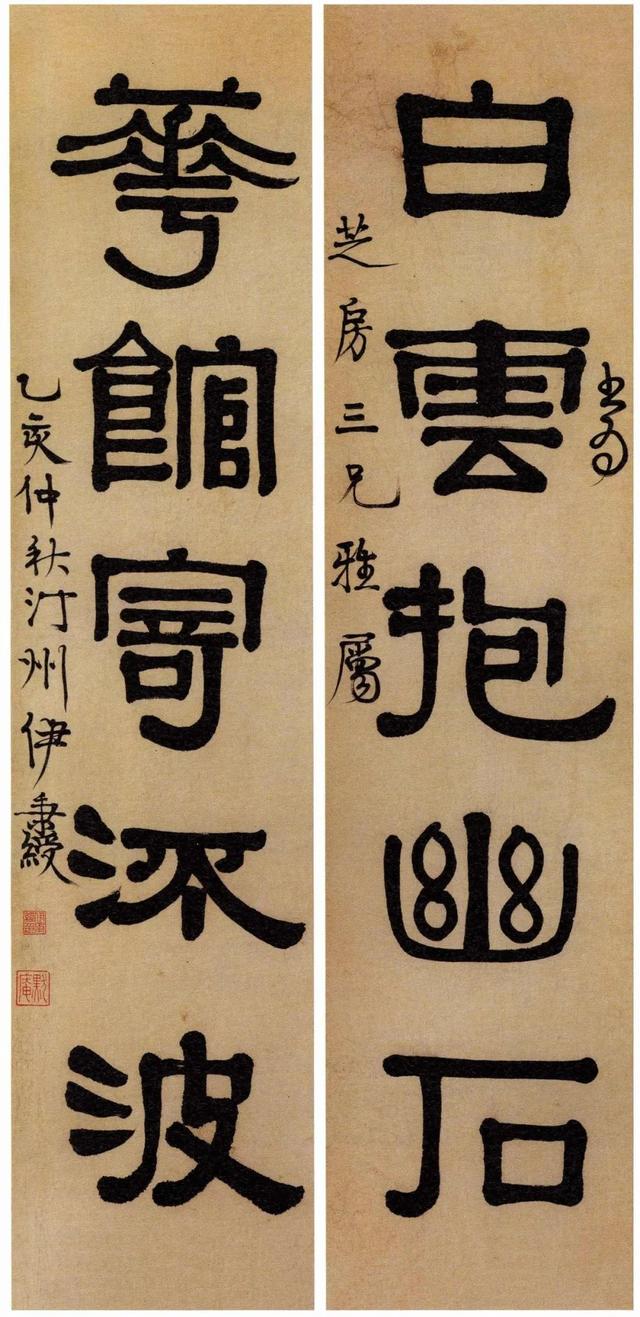 白雲抱幽石
書為
芝房三兄雅屬
華館寄流波
乙亥仲秋汀州伊秉綬
默庵